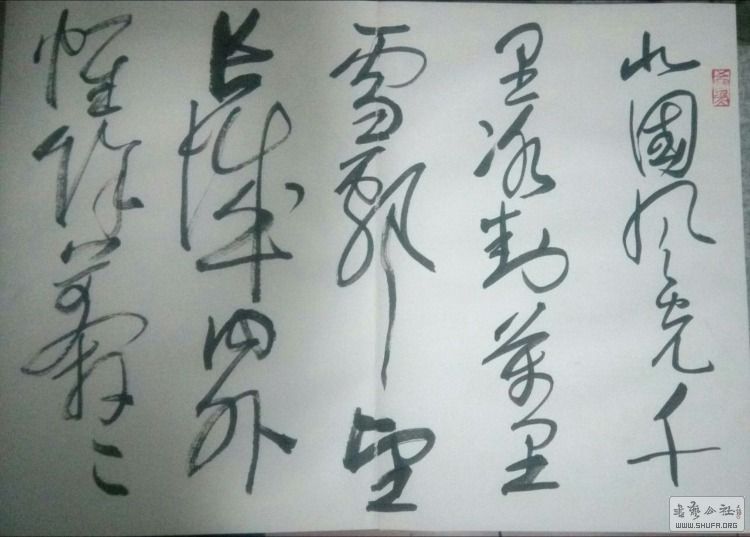 北國风光千
里冰封萬里
雪飄望
长城内外
惟馀莽々
书艺公社
WWW.SHUFA.ORG